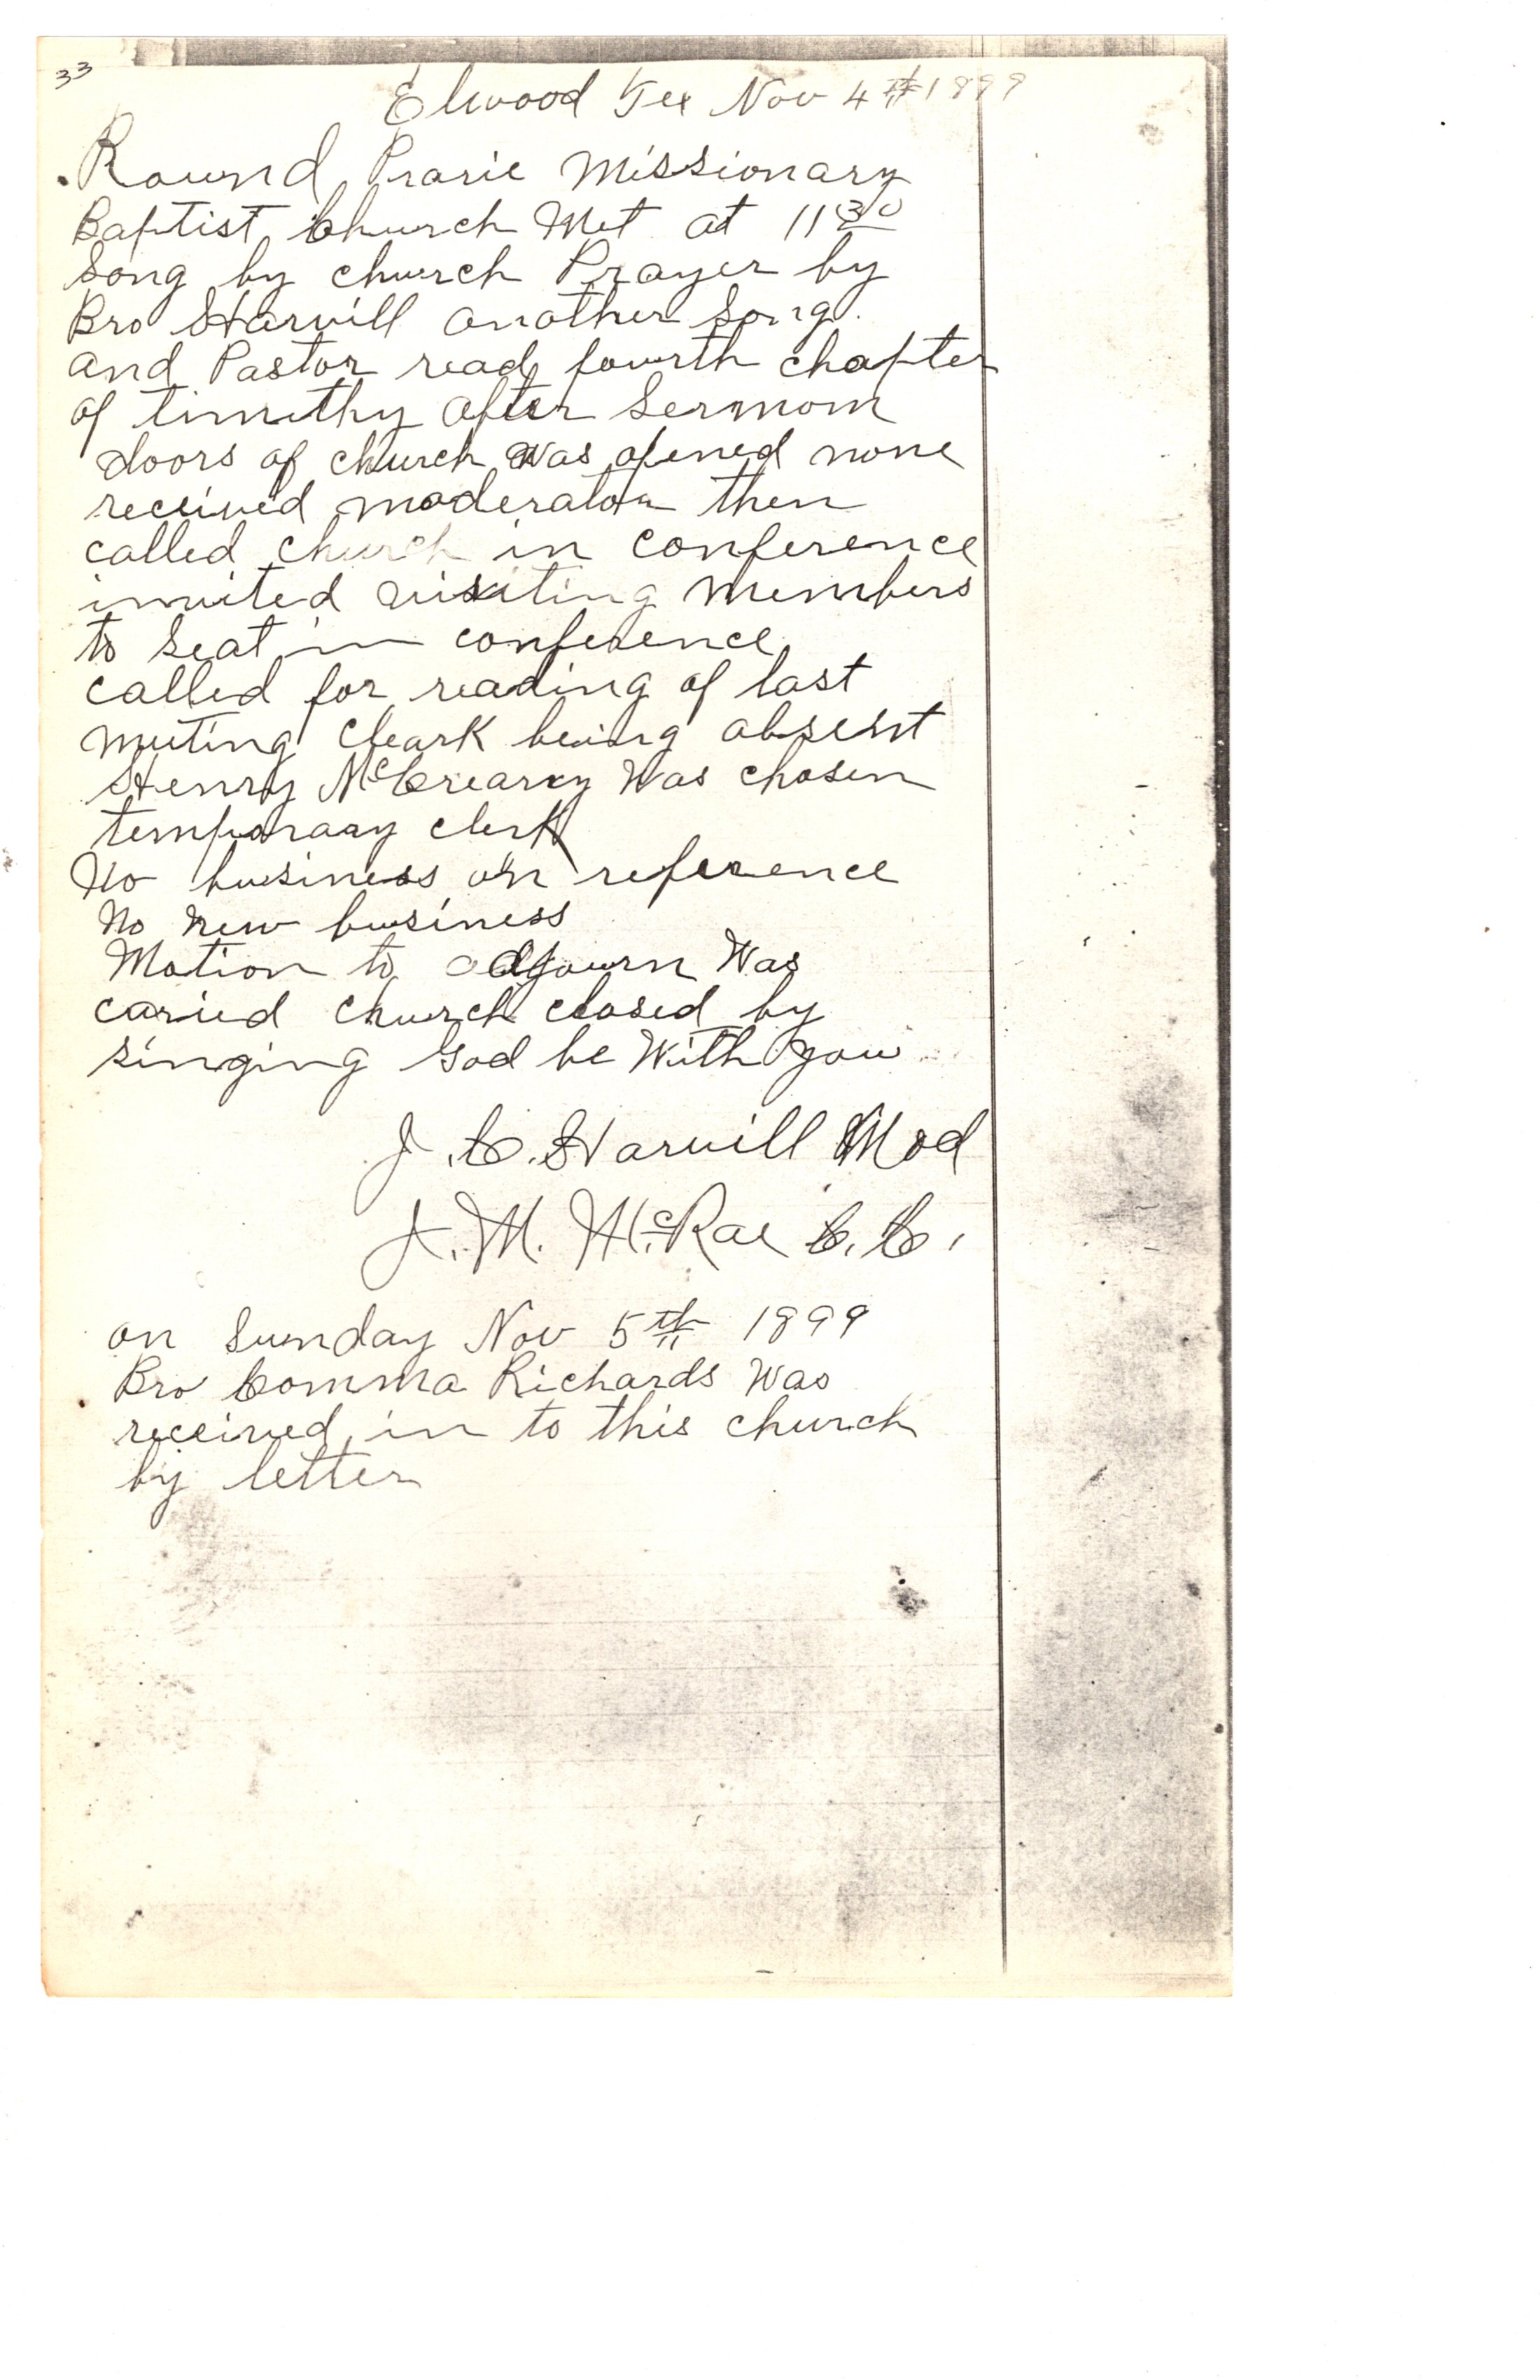 33
Elwood Tex Nov 4th 1899
Round Prarie Missionary
Baptist Church Met at 11 30
Song by church Prayer by
Bro Harvill another Song.
and Pastor read fourth chapter
of timithy after Sermom
doors of church was opened none
received moderator then
called church in conference
invited visiting members
to seat in conference
called for reading of last
meeting Cleark being absent
Henry McCreary Was chosen
temporary clerk
No business on reference
No new business
Motion to adjourn Was
caried church closed by
singing God be With you
J. C. Harvill Mod
J. M. McRae C. C.
on Sunday Nov 5th 1899
Bro Comma Richards Was
received in to this church
by letter